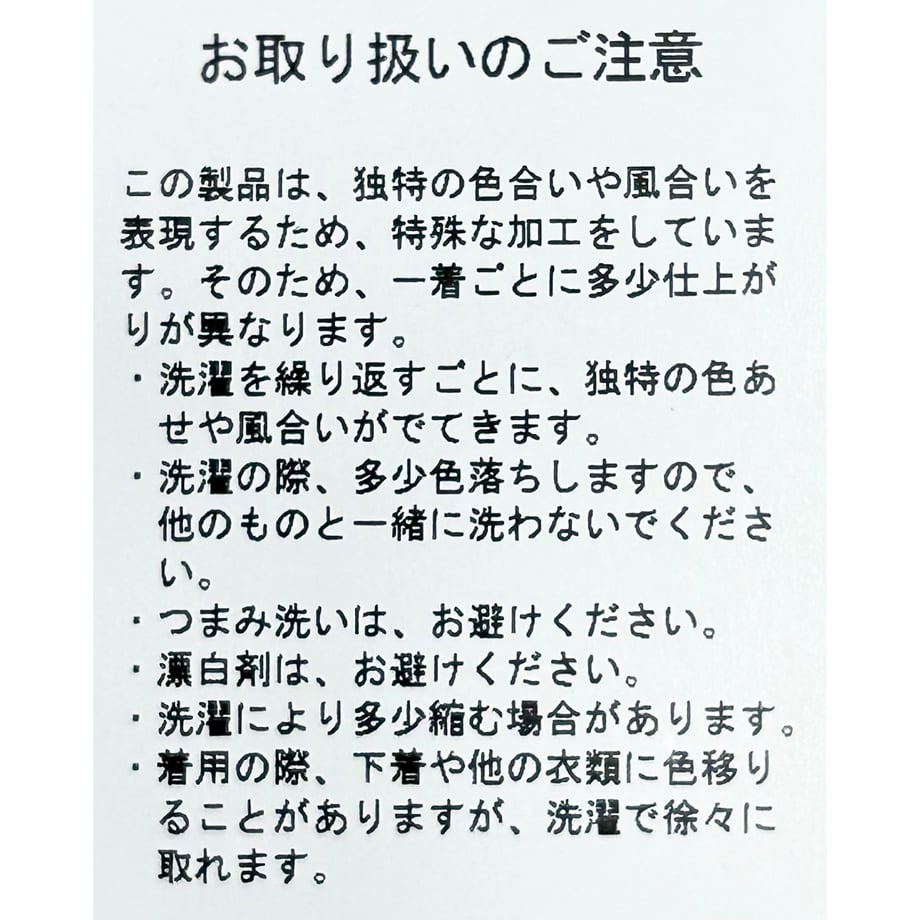 お取り扱いのご注意
この製品は、独特の色合いや風合いを
表現するため、特殊な加工をしていま
す。そのため、一着ごとに多少仕上が
りが異なります。
・洗濯を繰り返すごとに、独特の色あ
せや風合いがでてきます。
・洗濯の際、多少色落ちしますので、
他のものと一緒に洗わないでくださ
い。
・つまみ洗いは、お避けください。
・漂白剤は、お避けください。
・洗濯により多少縮む場合があります。
・着用の際、下着や他の衣類に色移り
ることがありますが、洗濯で徐々に
取れます。